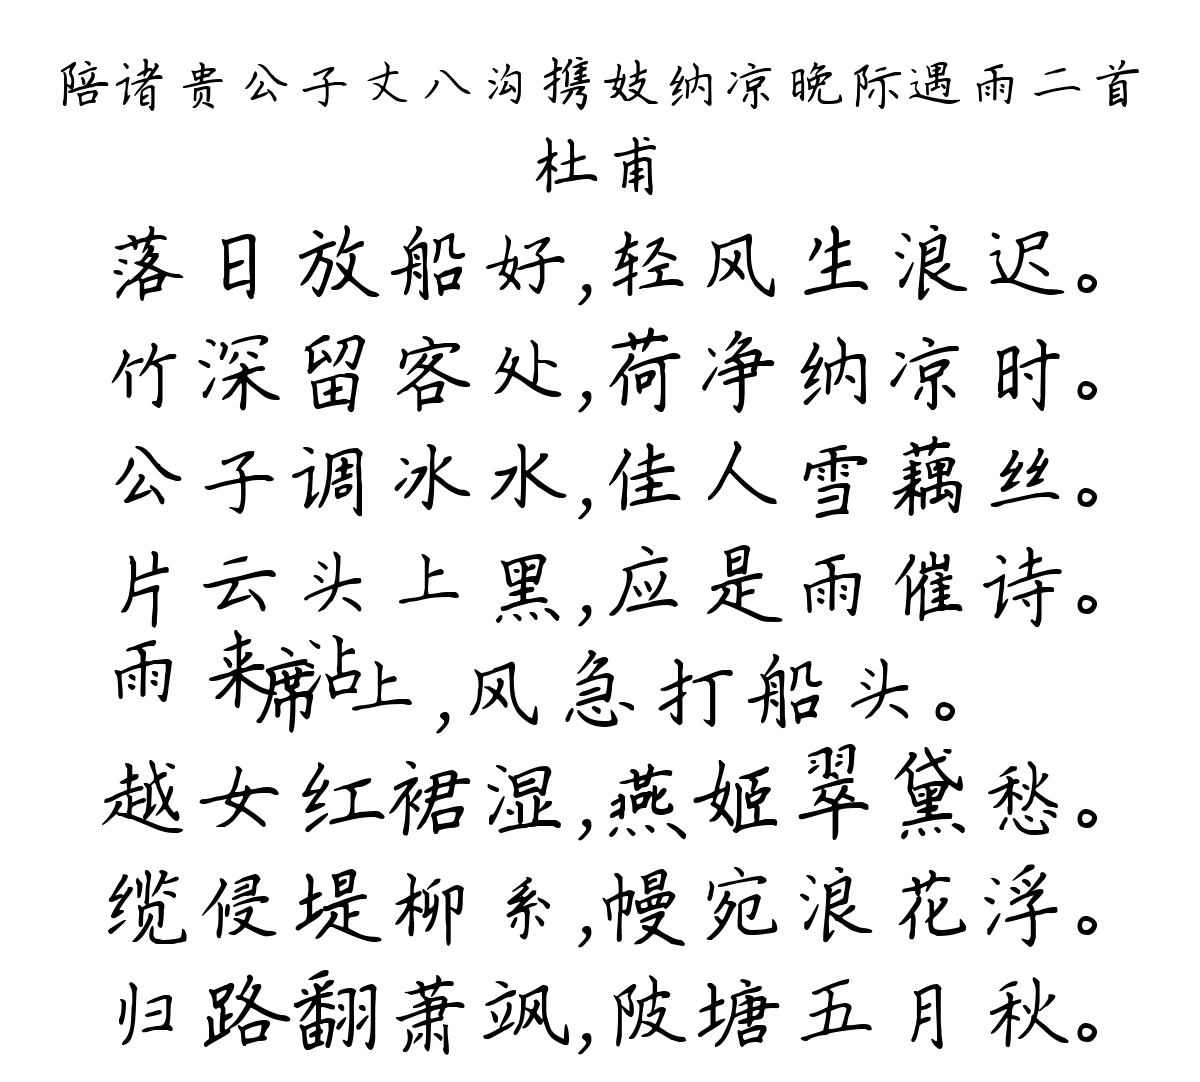 陪诸贵公子丈八沟携妓纳凉晚际遇雨二首
杜甫
落日放船好,轻风生浪迟。
竹深留客处,荷净纳凉时。
公子调冰水,佳人雪藕丝。
片云头上黑,应是雨催诗。
雨来沾席上,风急打船头。
越女红裙湿,燕姬翠黛愁。
缆侵堤柳系,幔宛浪花浮。
归路翻萧飒,陂塘五月秋。